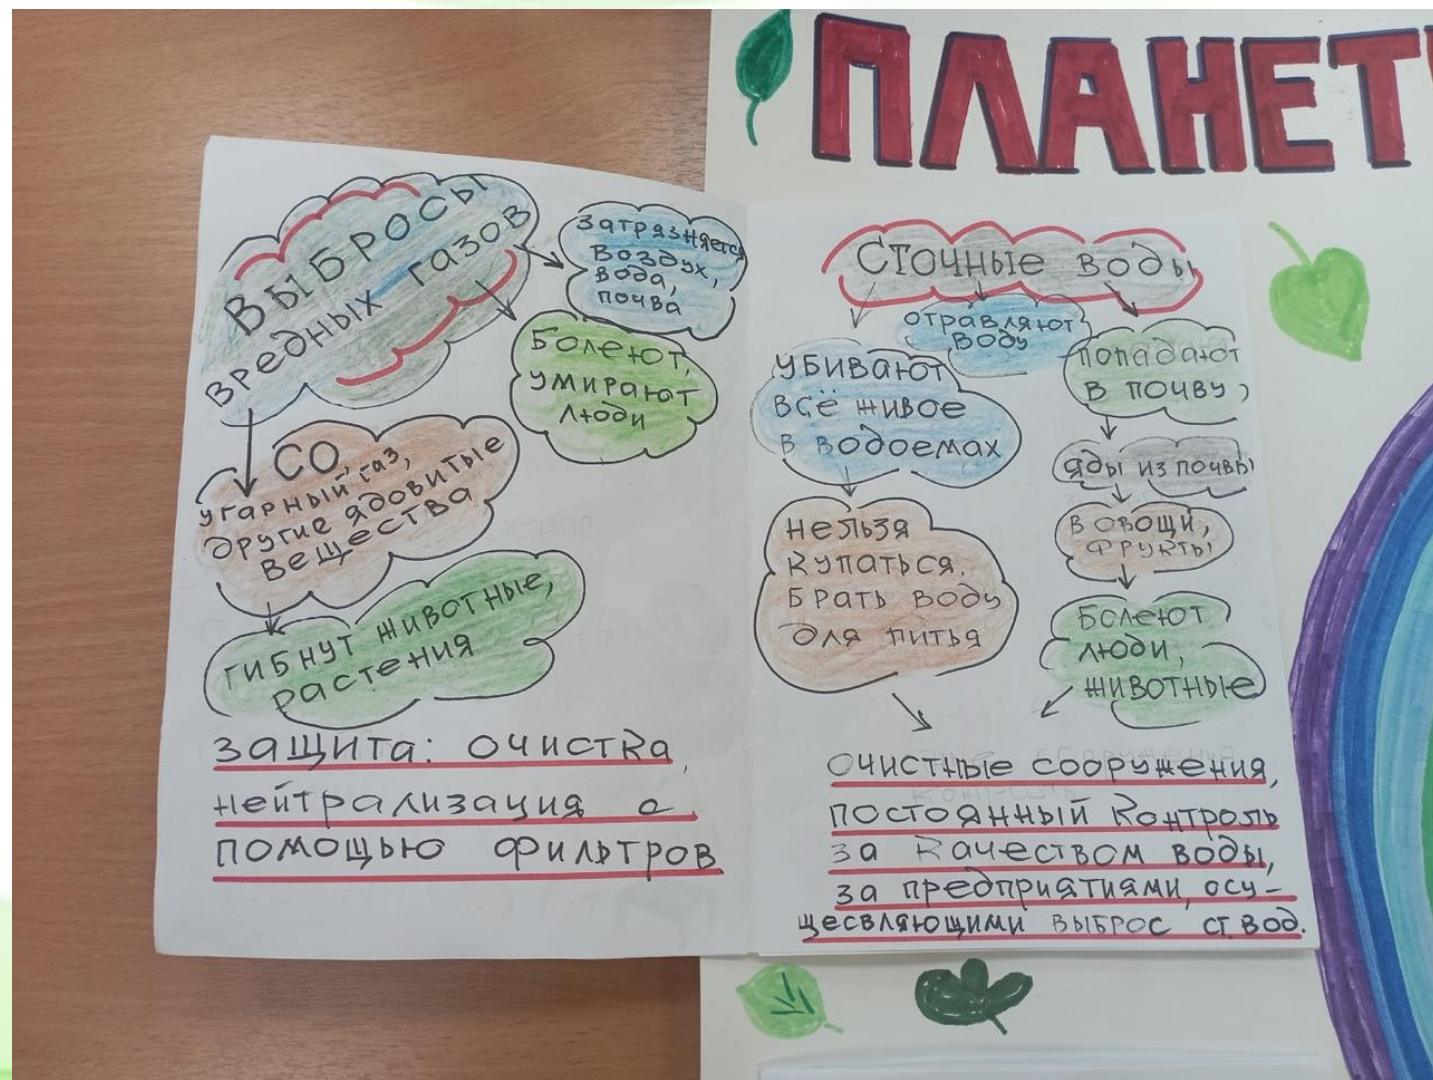 ПЛАНЕТ
ВЫБРОСЫ
ВРЕДНЫХ ГАЗОВ
Загрязняется
воздух,
вода,
почва
Болеют,
умирают
люди
CO,
угарный газ,
другие ядовитые
вещества
гибнут животные,
растения
защита: очистка,
нейтрализация с
помощью фильтров
Сточные воды
отравляют
воду
убивают
всё живое
в водоемах
нельзя
купаться.
Брать воду
для питья
попадают
в почву,
яды из почвы
в овощи,
фрукты
Болеют
люди,
животные
очистные сооружения,
постоянный контроль
за качеством воды,
за предприятиями, осу-
щесвляющими выброс ст. вод.